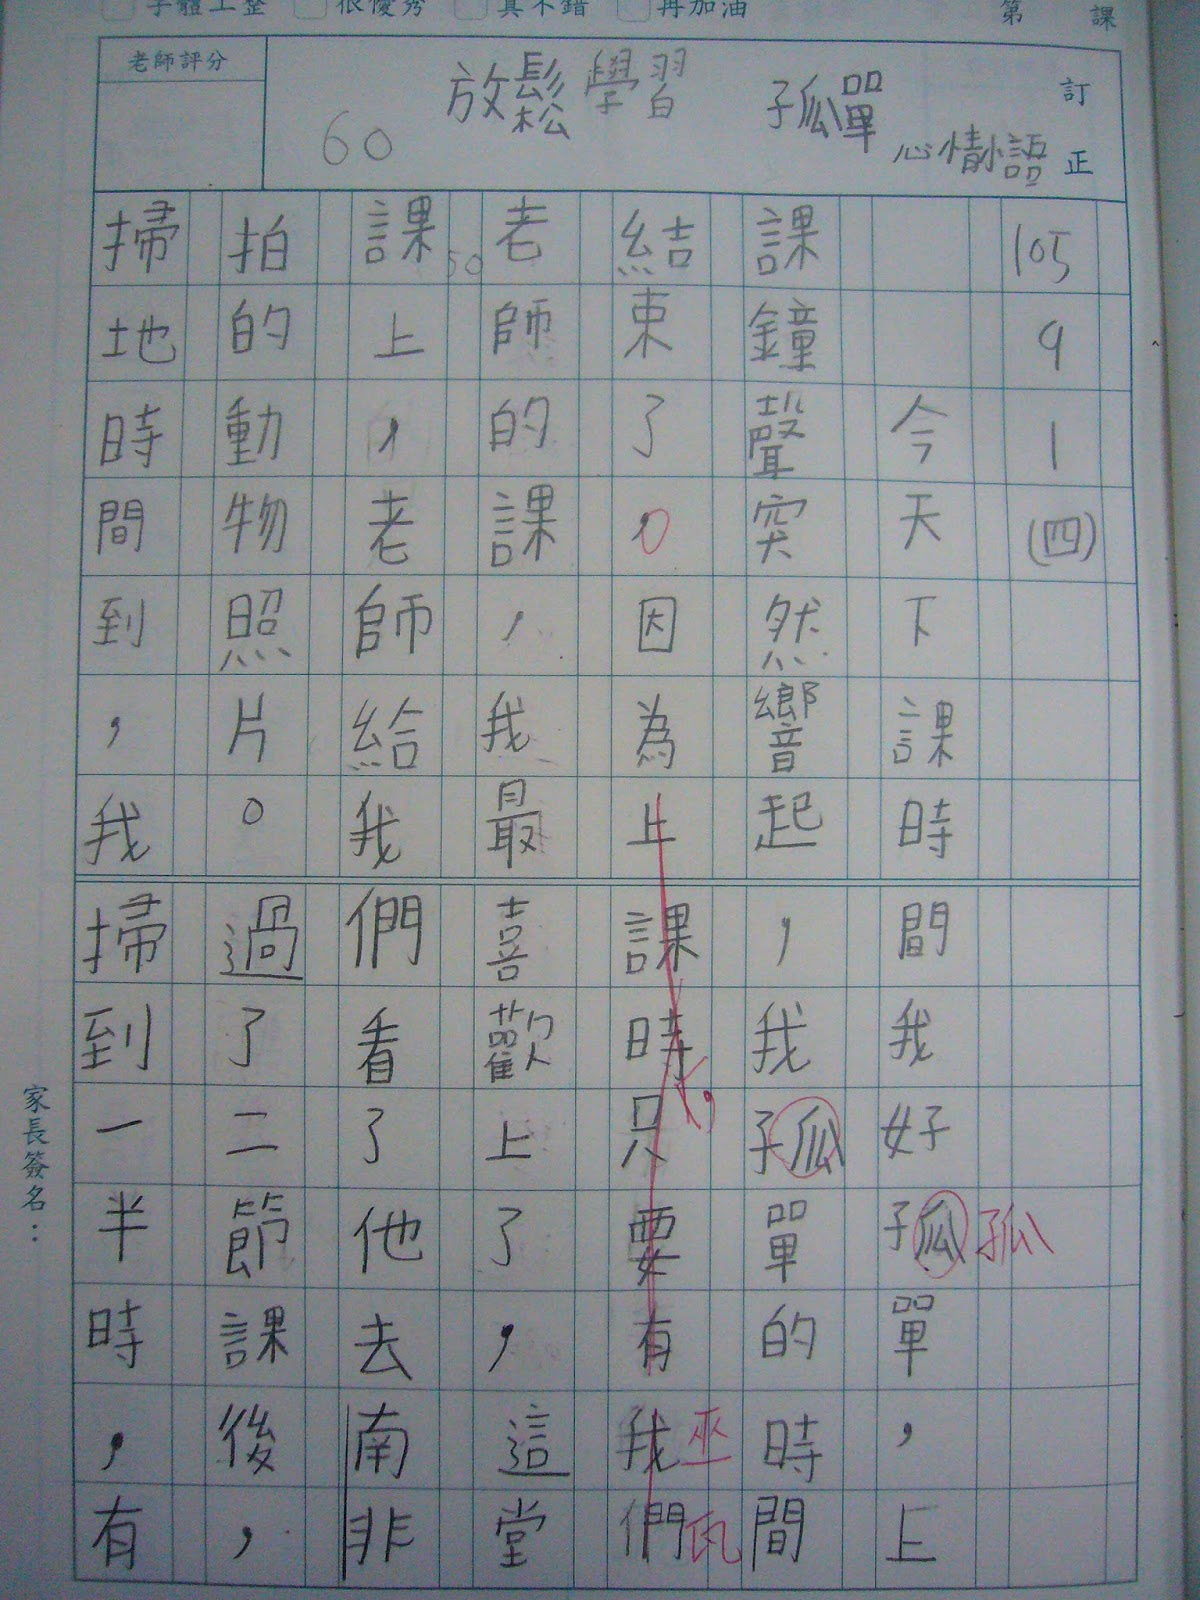 字體工整 很優秀 真不錯 再加油 第 課
訂正
心情小語
孤單
放鬆學習
60
老師評分
105 9 1 (四)
今天下課時間我好孤單，上
孤
課鐘聲突然響起，我孤單的時間
結束了，因為上課時只要有我們
巫
老師的課，我最喜歡上了，這堂
50
課上，老師給我們看了他去南非
拍的動物照片。過了二節課後，
掃地時間到，我掃到一半時，有
家長簽名：